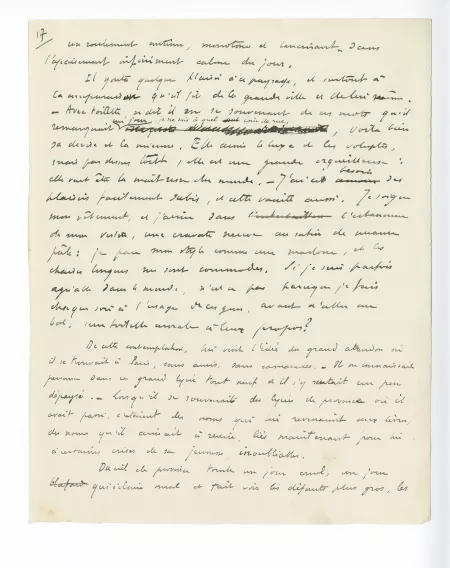 17
un roulement continu, monotone et lancinant. Dans
l'apaisement infiniment calme du jour.
Il goûta quelque plaisir à ce paysage, et surtout à
la comparaison qu'il fit de la grande ville et de lui-même.
un jour, je ne sais à quel coin de rue,
— Avec toilette, se dit-il en se souvenant de ces mots qu'il
remarquait, voilà bien
sa devise et la mienne. Elle aime le luxe et les voluptés,
mais par dessus tout, elle est une grande orgueilleuse :
besoin
elle veut être la maîtresse du monde. — J'ai cet des
plaisirs facilement subis, et cette vanité aussi. Je soigne
mon vêtement, et j'arrive dans l'échancrure
de mon veston, une cravate neuve au satin de nuance
pâle : je pare mon style comme une madone, et les
chaises longues me sont commodes. Si je suis parfois
agréable dans le monde, n'est-ce pas parce que je fais
chaque soir à l'usage de ces gens, avant d'aller au
bal, une toilette morale à leurs propos?
De cette contemplation, lui vint l'idée du grand abandon où
il se trouvait à Paris, sans amis, sans camarades. — Il ne connaissait
personne dans ce grand lycée tout neuf et il s'y sentait un peu
dépaysé. — Lorsqu'il se souvenait des lycées de province où il
avait passé, c'étaient des noms qui lui revenaient aux lèvres,
des noms qu'il aimait à redire, liés maintenant pour lui
à certaines crises de sa jeunesse inoubliables.
Du ciel de province tombe un jour cruel, un jour
blafard qui éclaire mal et fait voir les défauts plus gros, les